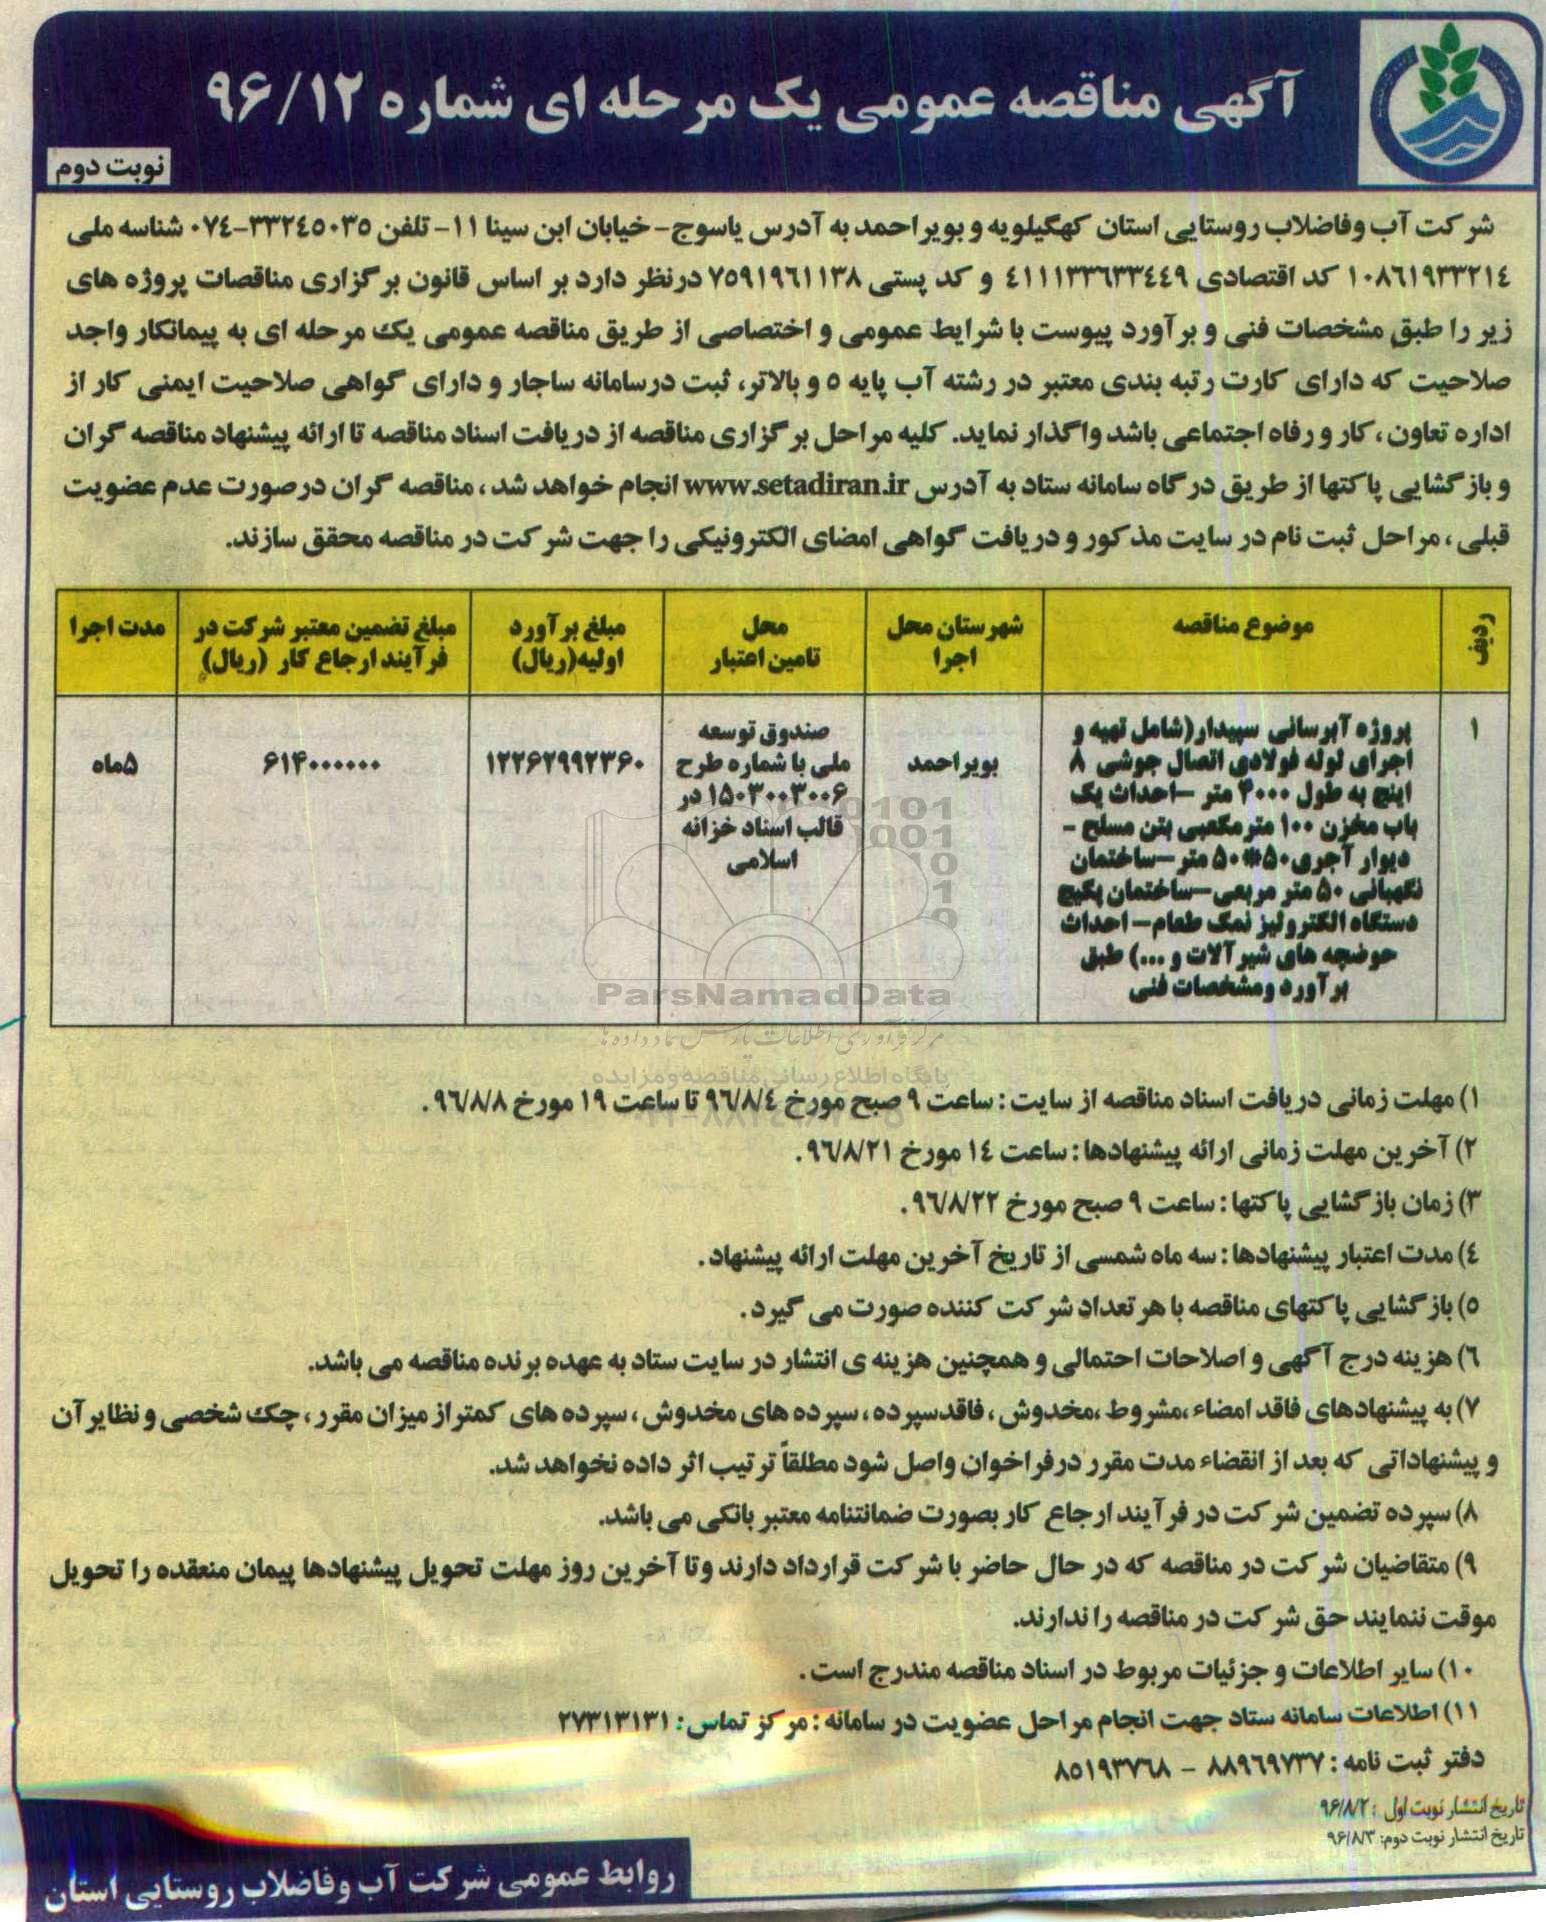 آگهی مناقصه عمومی یک مرحله ای شماره ۹۶/۱۲
نوبت دوم
شرکت آب وفاضلاب روستایی استان کهگیلویه و بویراحمد به آدرس یاسوج- خیابان ابن سینا ۱۱- تلفن ۳۳۲٤٥۰۳٥-۰۷٤ شناسه ملی
۱۰۸٦۱۹۳۳۲۱٤ کد اقتصادی ٤۱۱۱۳۳٦۳۳٤٤۹ و کد پستی ۷٥۹۱۹٦۱۱۳۸ درنظر دارد بر اساس قانون برگزاری مناقصات پروژه های
زیر را طبق مشخصات فنی و برآورد پیوست با شرایط عمومی و اختصاصی از طریق مناقصه عمومی یک مرحله ای به پیمانکار واجد
صلاحیت که دارای کارت رتبه بندی معتبر در رشته آب پایه ٥ و بالاتر، ثبت درسامانه ساجار و دارای گواهی صلاحیت ایمنی کار از
اداره تعاون ، کار و رفاه اجتماعی باشد واگذار نماید. کلیه مراحل برگزاری مناقصه از دریافت اسناد مناقصه تا ارائه پیشنهاد مناقصه گران
و بازگشایی پاکتها از طریق درگاه سامانه ستاد به آدرس www.setadiran.ir انجام خواهد شد ، مناقصه گران درصورت عدم عضویت
قبلی ، مراحل ثبت نام در سایت مذکور و دریافت گواهی امضای الکترونیکی را جهت شرکت در مناقصه محقق سازند.
ردیف
موضوع مناقصه
شهرستان محل
اجرا
محل
تامین اعتبار
مبلغ برآورد
اولیه(ریال)
مبلغ تضمین معتبر شرکت در
فرآیند ارجاع کار (ریال)
مدت اجرا
۱
پروژه آبرسانی سپیدار(شامل تهیه و
اجرای لوله فولادی اتصال جوشی ۸
اینچ به طول ۴۰۰۰ متر -احداث یک
باب مخزن ۱۰۰ مترمکعبی بتن مسلح -
دیوار آجری۵۰*۵۰ متر-ساختمان
نگهبانی ۵۰ متر مربعی-ساختمان پکیج
دستگاه الکترولیز نمک طعام- احداث
حوضچه های شیرآلات و ...) طبق
برآورد ومشخصات فنی
بویراحمد
صندوق توسعه
ملی با شماره طرح
۱۵۰۳۰۰۳۰۰۶ در
قالب اسناد خزانه
اسلامی
۱۲۲۶۲۹۹۲۳۶۰
۶۱۴۰۰۰۰۰۰
۵ماه
ParsNamadData
پایگاه اطلاع رسانی مناقصه و مزایده
۱) مهلت زمانی دریافت اسناد مناقصه از سایت : ساعت ۹ صبح مورخ ۹٦/۸/٤ تا ساعت ۱۹ مورخ ۹٦/۸/۸ .
۲) آخرین مهلت زمانی ارائه پیشنهادها : ساعت ۱٤ مورخ ۹٦/۸/۲۱ .
۳) زمان بازگشایی پاکتها : ساعت ۹ صبح مورخ ۹٦/۸/۲۲ .
٤) مدت اعتبار پیشنهادها : سه ماه شمسی از تاریخ آخرین مهلت ارائه پیشنهاد .
٥) بازگشایی پاکتهای مناقصه با هر تعداد شرکت کننده صورت می گیرد .
٦) هزینه درج آگهی و اصلاحات احتمالی و همچنین هزینه ی انتشار در سایت ستاد به عهده برنده مناقصه می باشد.
۷) به پیشنهادهای فاقد امضاء ،مشروط ،مخدوش ، فاقدسپرده ، سپرده های مخدوش ، سپرده های کمتر از میزان مقرر ، چک شخصی و نظایر آن
و پیشنهاداتی که بعد از انقضاء مدت مقرر درفراخوان واصل شود مطلقاً ترتیب اثر داده نخواهد شد.
۸) سپرده تضمین شرکت در فرآیند ارجاع کار بصورت ضمانتنامه معتبر بانکی می باشد.
۹) متقاضیان شرکت در مناقصه که در حال حاضر با شرکت قرارداد دارند وتا آخرین روز مهلت تحویل پیشنهادها پیمان منعقده را تحویل
موقت ننمایند حق شرکت در مناقصه را ندارند.
۱۰) سایر اطلاعات و جزئیات مربوط در اسناد مناقصه مندرج است .
۱۱) اطلاعات سامانه ستاد جهت انجام مراحل عضویت در سامانه : مرکز تماس : ۲۷۳۱۳۱۳۱
دفتر ثبت نامه : ۸۸۹٦۹۷۳۷ - ۸٥۱۹۳۷٦۸
تاریخ انتشار نوبت اول : ۹۶/۸/۲
تاریخ انتشار نوبت دوم: ۹۶/۸/۳
روابط عمومی شرکت آب وفاضلاب روستایی استان